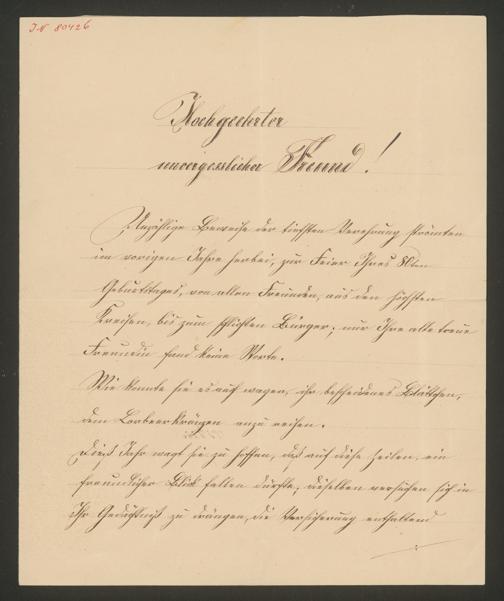 I.N 80426
Hochgeehrter
unvergesslicher Freund!
Unzählige Beweise der tiefsten Verehrung strömten
im vorigen Jahre herbei, zur Feier Ihres 80ten
Geburtstages, von allen Freunden, aus den höchsten
Kreisen, bis zum schlichten Bürger; nur Ihre alte treue
Freundin fand keine Worte.
Wie konnte sie es auch wagen, ihr bescheidenes Blättchen,
dem Lorbeerkränzen anzureihen.
Dieß Jahr wagt sie zu hoffen, daß auf diese Zeilen, ein
freundlicher Blick fallen dürfte, dieselben versuchen sich in
Ihr Gedächtniß zu drängen, die Versicherung enthaltend